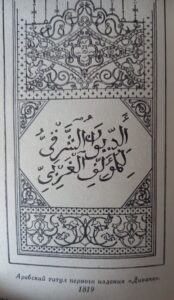 الديوان الشرقي
للمؤلف الغربي
Арабский титул первого издания «Дивана».
1819